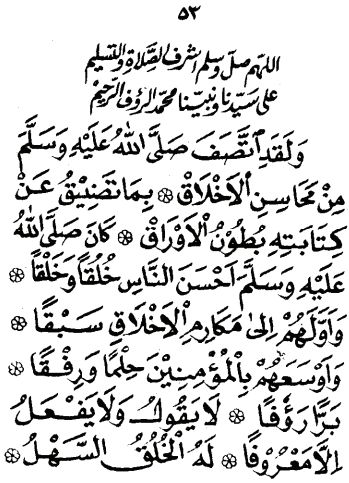 ٥٣
اللهم صل وسلم اشرف الصلاة والتسليم
على سيدنا ونبينا محمد الرؤف الرحيم
وَلَقَدِ اتَّصَفَ صَلَّى اللهُ عَلَيْهِ وَسَلَّمَ
مِنْ مَحَاسِنِ الْاَخْلَاقِ ۞ بِمَا تَضِيْقُ عَنْ
كِتَابَتِهِ بُطُوْنُ الْاَوْرَاقِ ۞ كَانَ صَلَّى اللهُ
عَلَيْهِ وَسَلَّمَ اَحْسَنَ النَّاسِ خُلُقًا وَخَلْقًا ۞
وَاَوَّلَهُمْ اِلىٰ مَكَارِمِ الْاَخْلَاقِ سَبْقًا ۞
وَاَوْسَعَهُمْ بِالْمُؤْمِنِيْنَ حِلْمًا وَرِفْقًا ۞
بَرًّا رَؤُفًا ۞ لَا يَقُوْلُ وَلَا يَفْعَلُ
اِلَّا مَعْرُوْفًا ۞ لَهُ الْخُلُقُ السَّهْلُ ۞